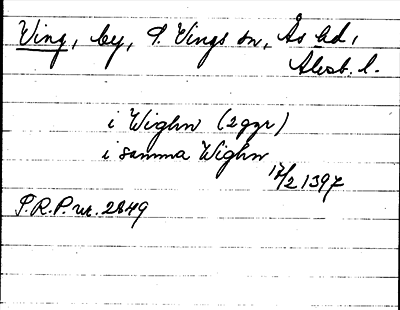 Ving, by, S. Vings sn, Ås hd,
Älvsb. l.
i Wighn (2 ggr)
i samma Wighn
17/2 1397
S.R.P. nr. 2849